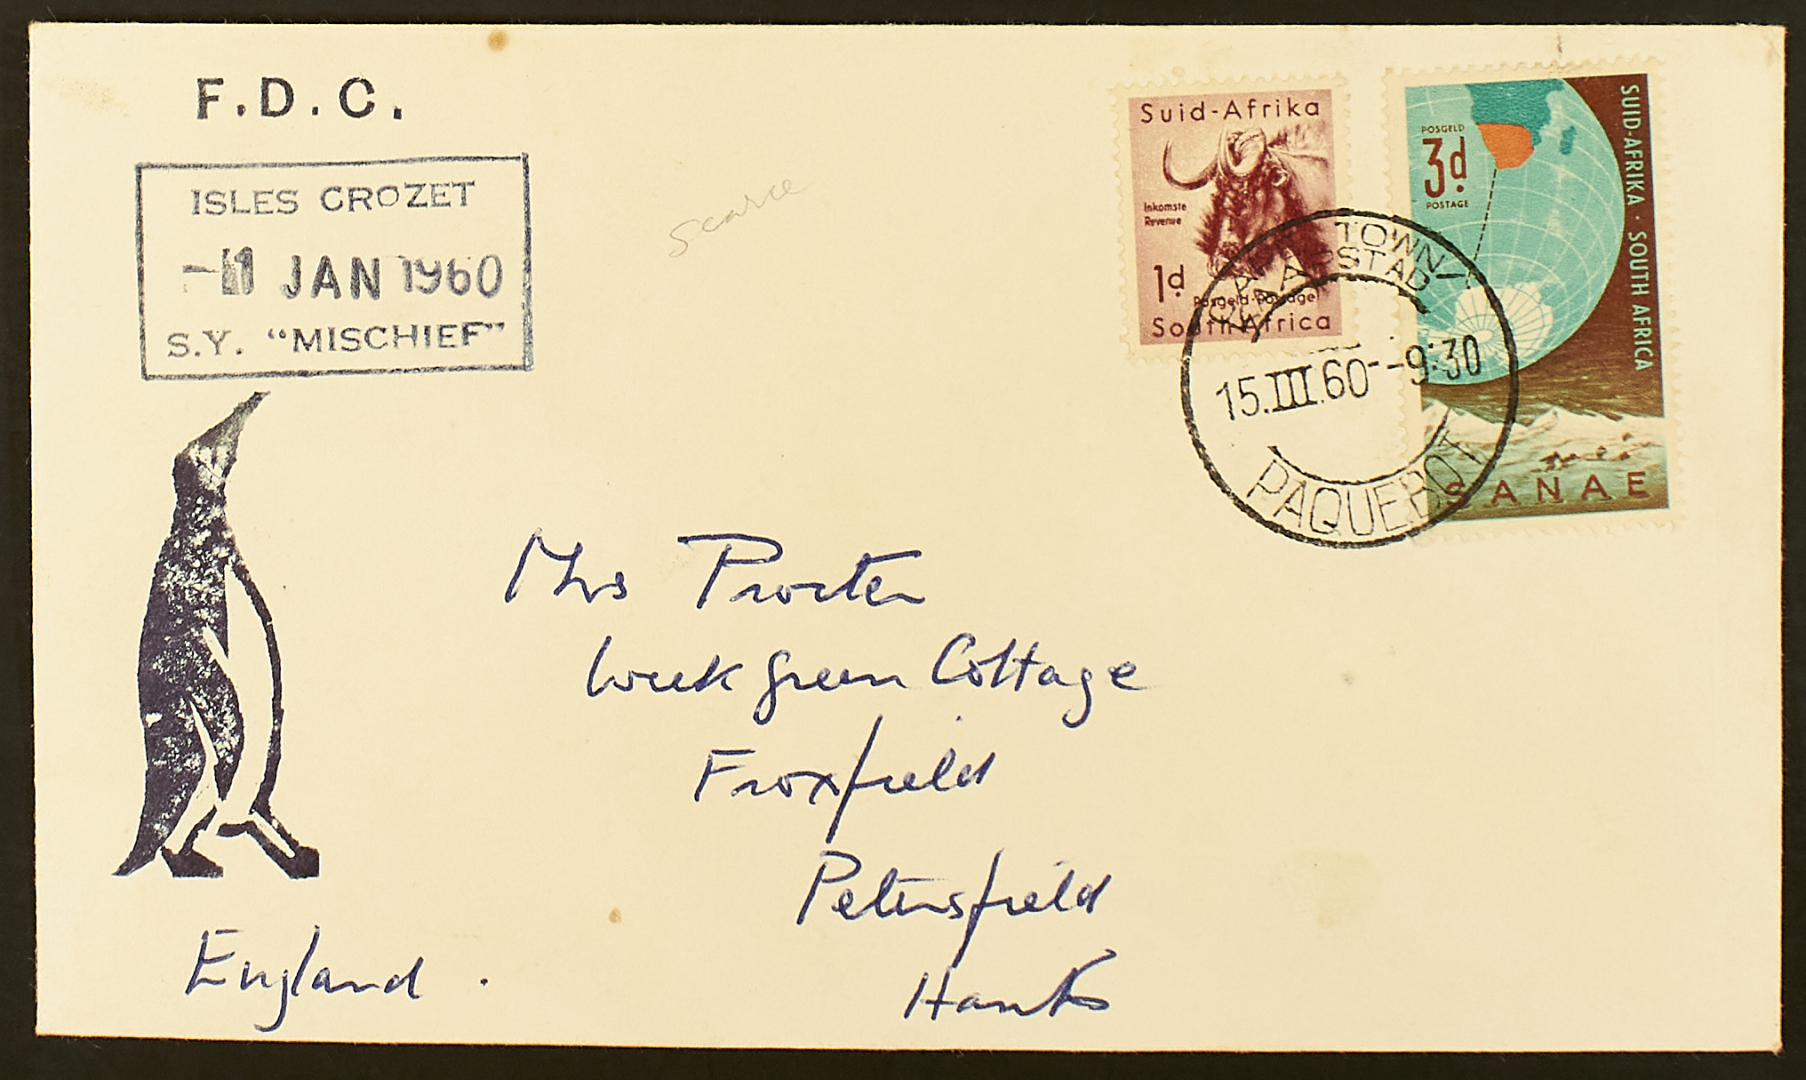 F.D.C.
ISLES CROZET
-1 JAN 1960
S.Y. "MISCHIEF"
scarce
Suid-Afrika
Inkomste
Revenue
1d
Posgeld-Postage
South Africa
POSGELD
3d
POSTAGE
SUID-AFRIKA · SOUTH AFRICA
SANAE
CAPE TOWN/
KAAPSTAD
15.III.60--9:30
PAQUEBOT
Mrs Procter
Week Green Cottage
Froxfield
Petersfield
Hants
England.